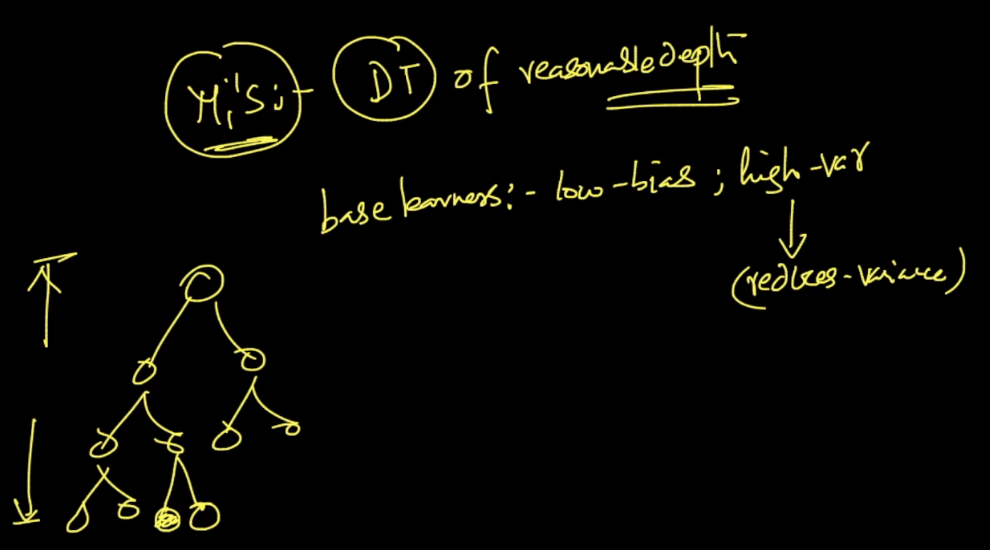 Mi's :- DT of reasonable depth
base learners :- low-bias ; high-var
(reduces-variance)